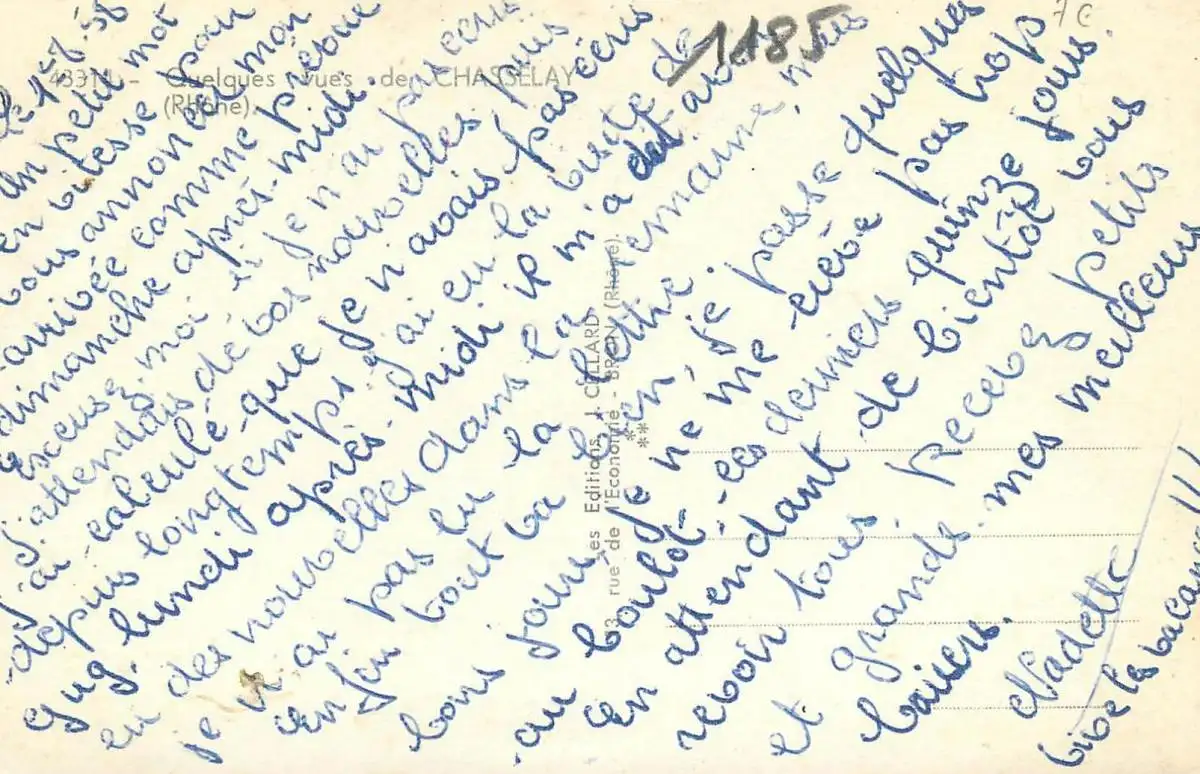 1185
7C
43311 - Quelques vues de CHASSELAY
(Rhône).
Les Editions J. CELLARD
rue de l'Economie - BRON (Rhône).
le 1-8-58
Un petit mot
en vitesse pour
vous annoncer mon
arrivée comme prévu
dimanche après-midi.
Escusez moi si je n'ai pas écris
J'attendais de vos nouvelles puis
j'ai calculé que je n'avais pas écris
depuis longtemps j'ai eu la visite de
gug. lundi après-midi il m'a dit avoir
eu des nouvelles dans la semaine, mais
je n'ai pas lu la lettre.
Enfin tout va bien, je passe quelques
bons jours je ne me crève pas trop
au boulot ces derniers quinze jours.
En attendant de bientôt vous
revoir tous recevez petits
et grands mes meilleurs
baisers.
Nadette
vive les vacances!!